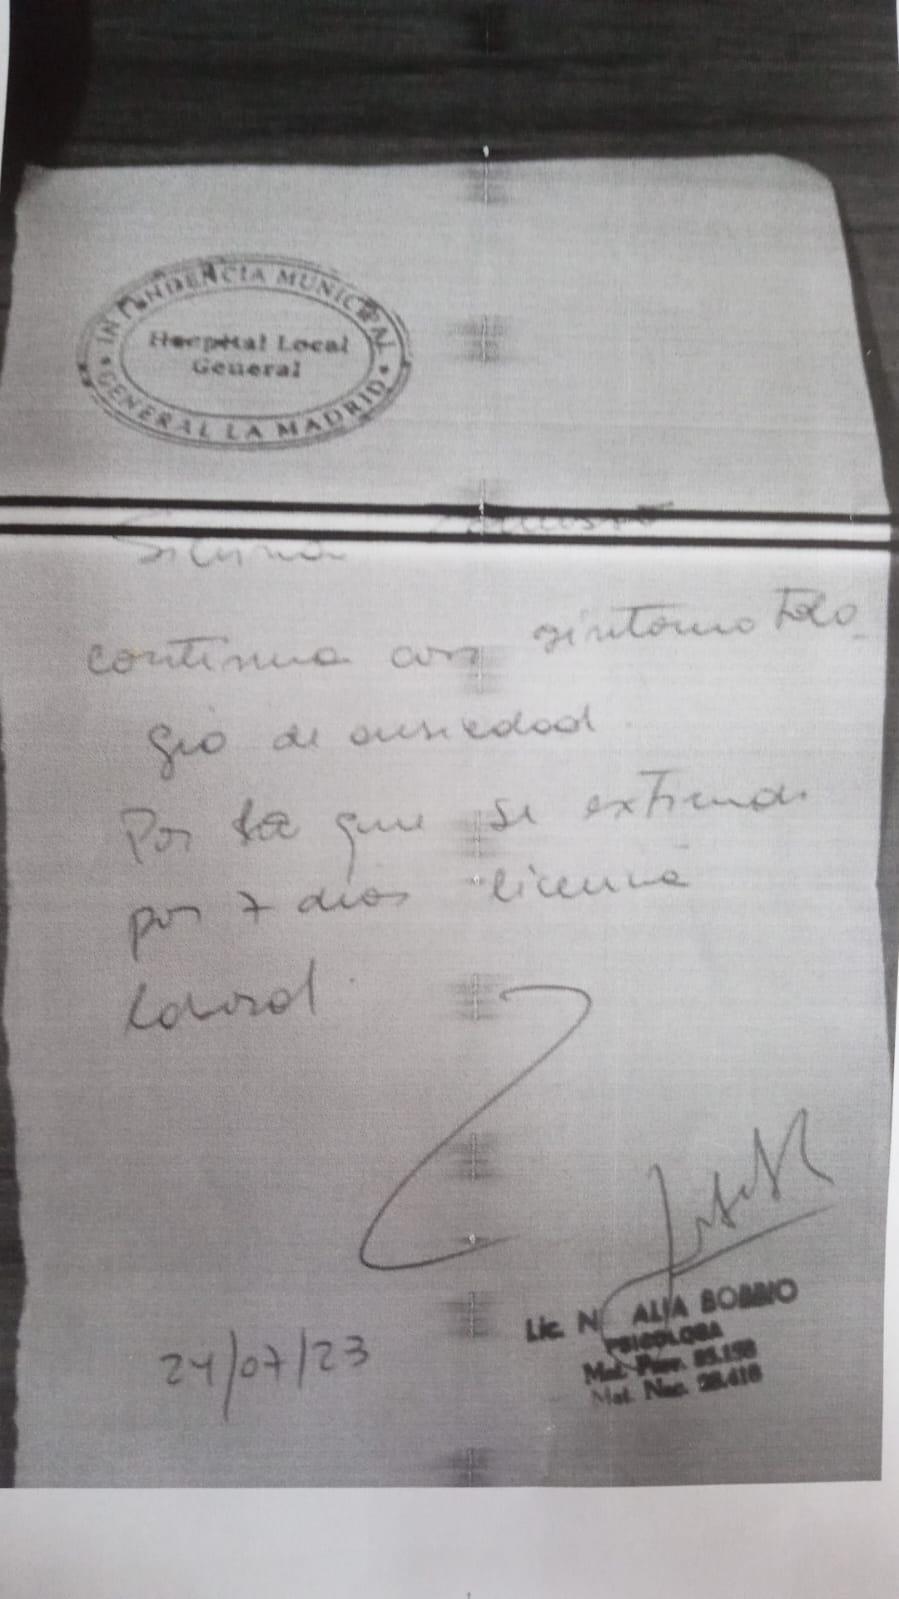 INTENDENCIA MUNICIPAL
Hospital Local
General
GENERAL LA MADRID
Silvina
continua con sintomatolo
gia de ansiedad.
Por la que se extiende
por 7 dias licencia
laboral.
24/07/23
Lic. N ALIA BOBBIO
PSICOLOGA
Mat. Prov.
Mat. Nac.